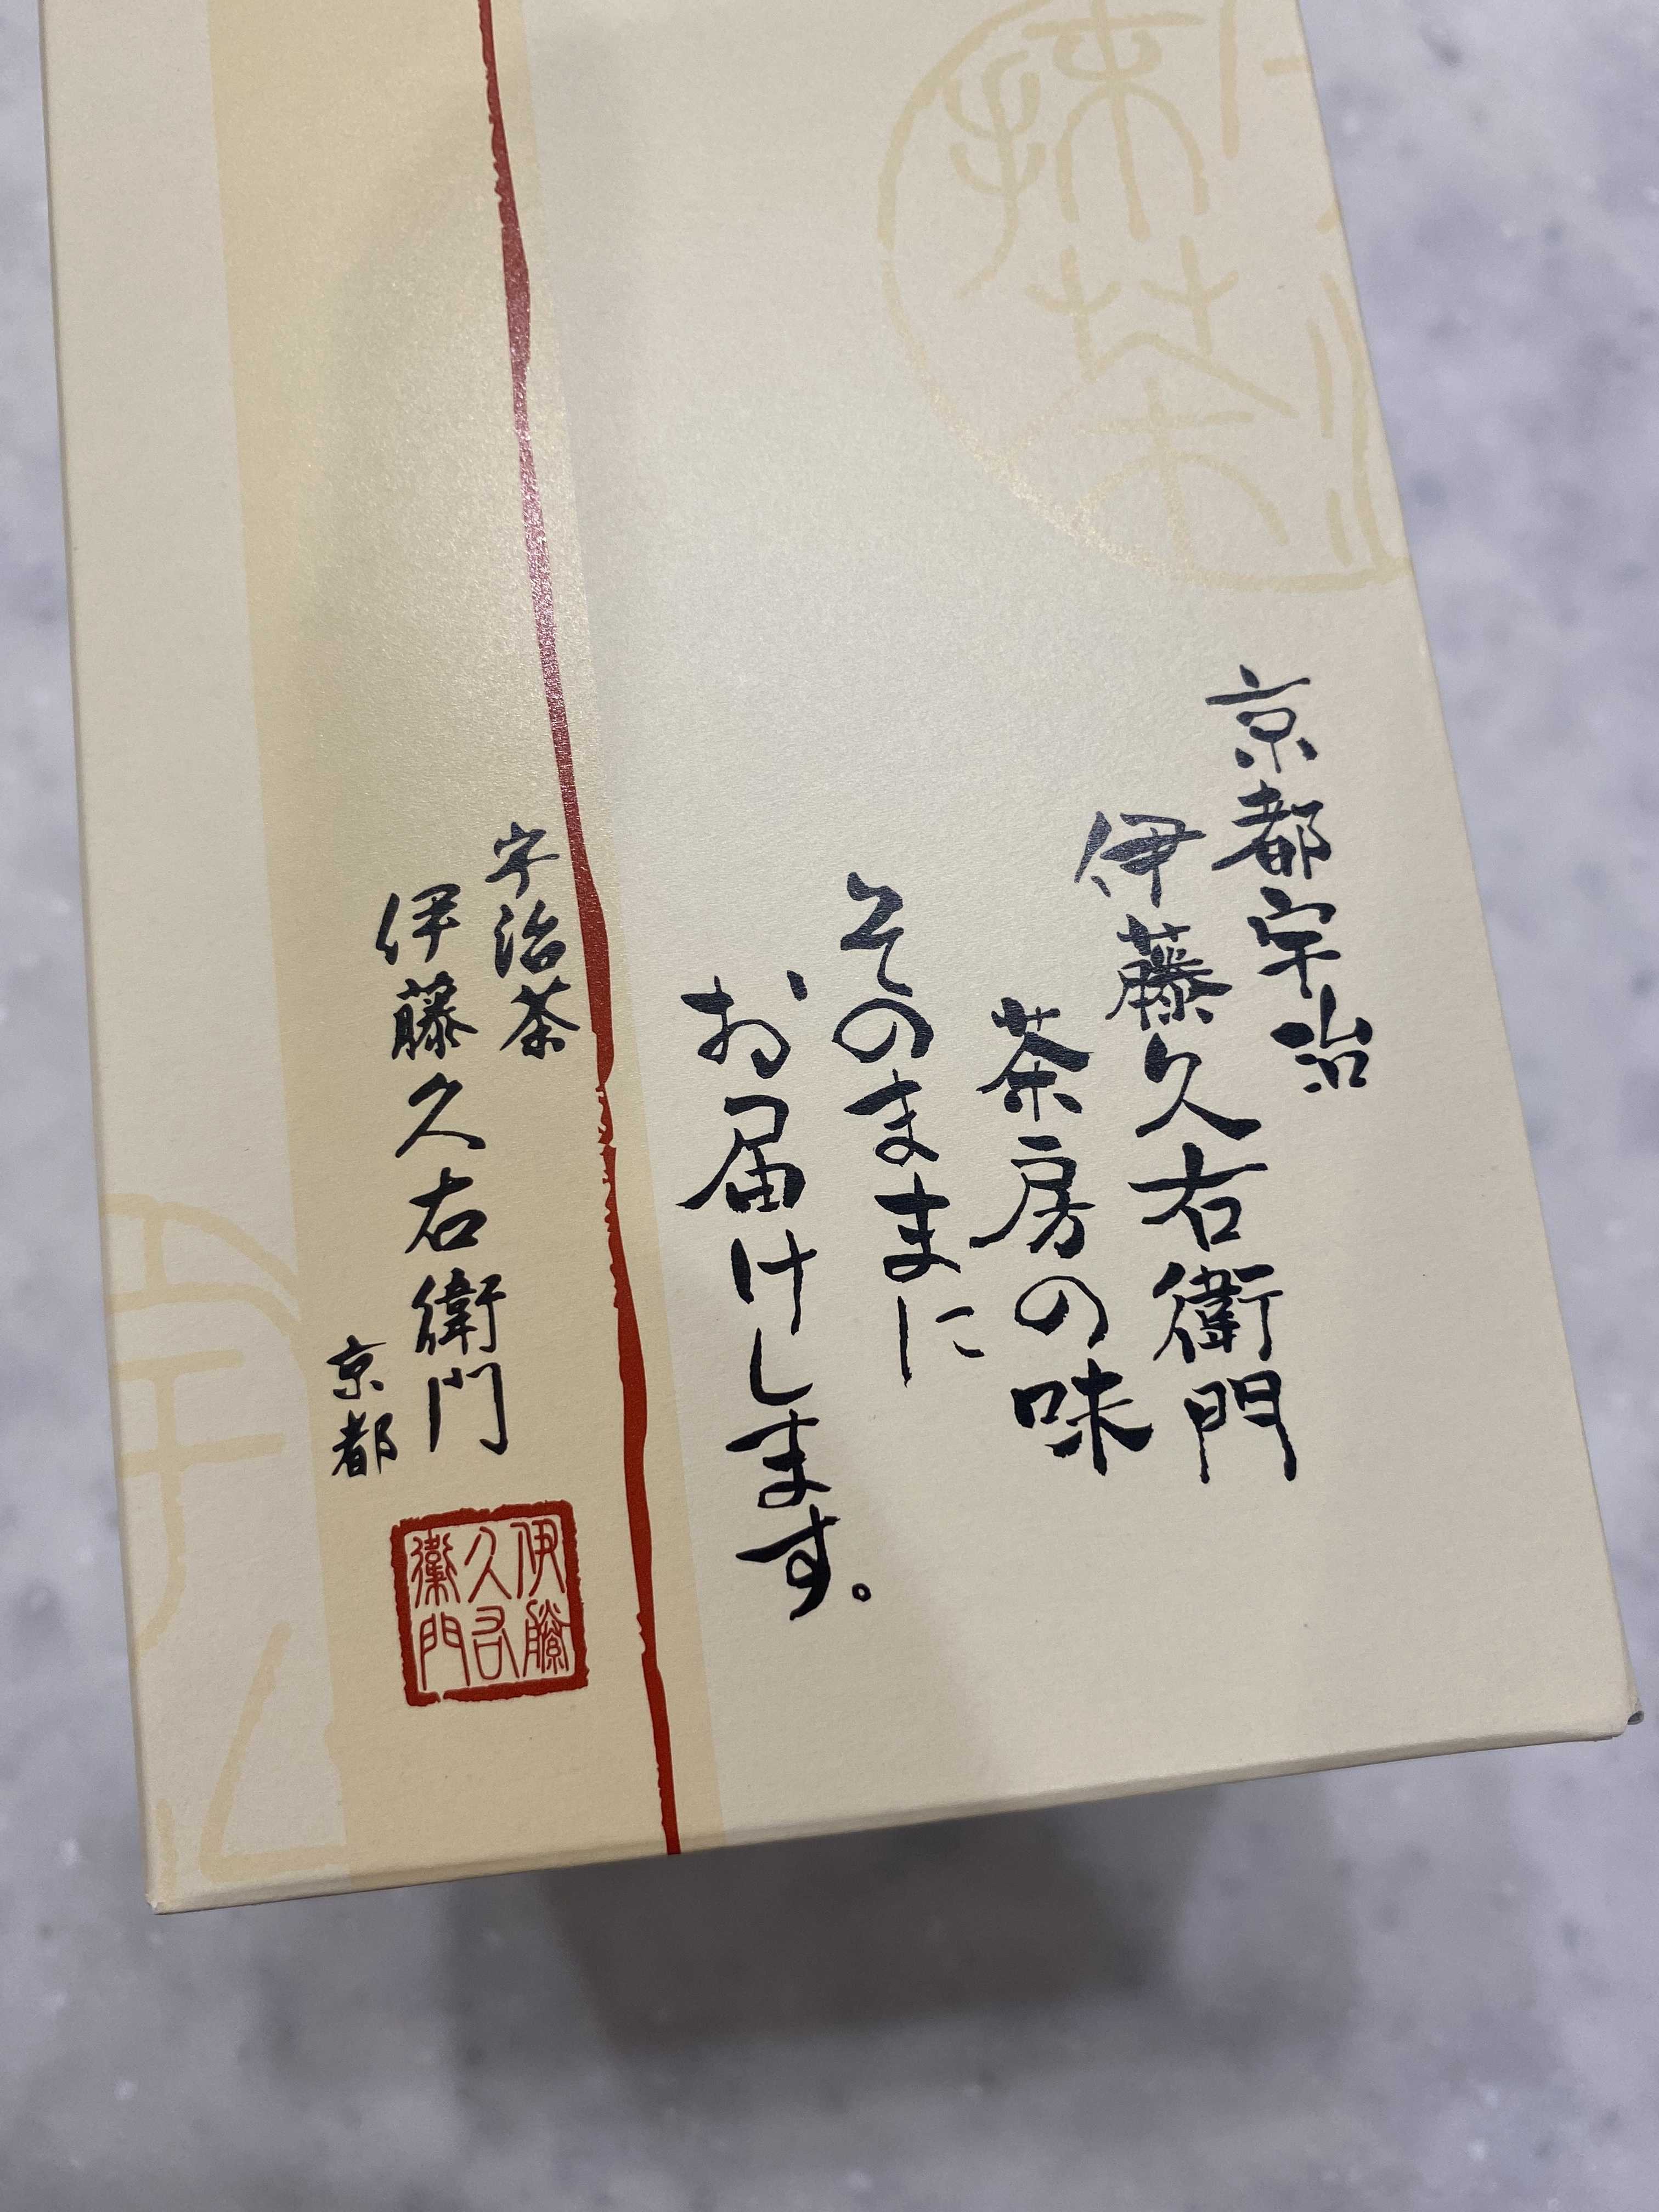 京都宇治
伊藤久右衛門
茶房の味
そのままに
お届けします。
宇治茶
伊藤久右衛門
京都
伊藤
久右
衛門